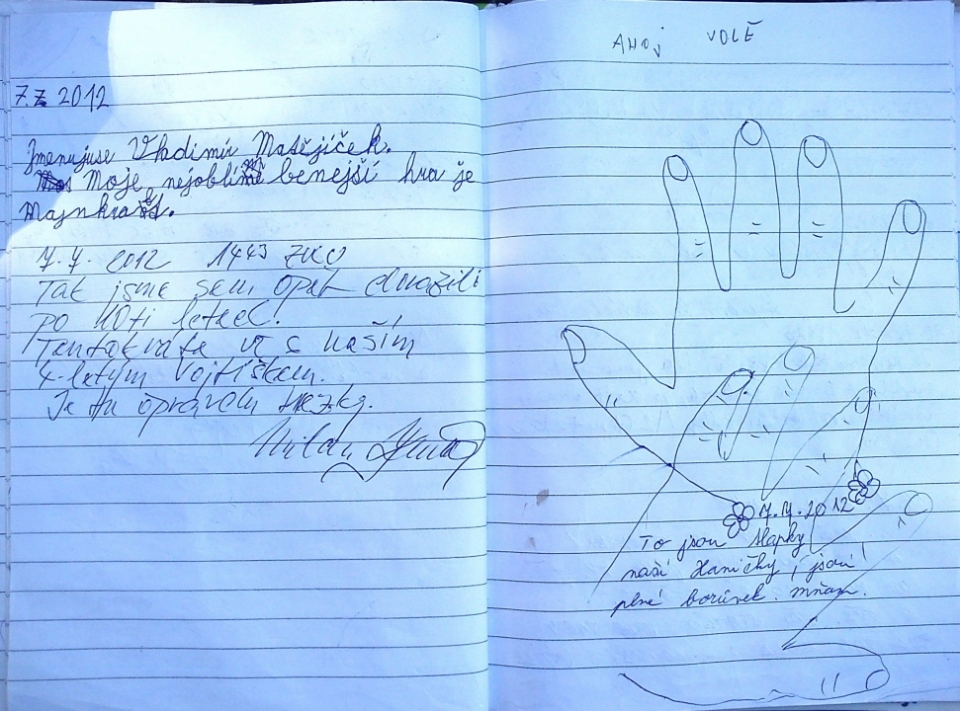 7.7. 2012
Jmenujuse Vladimír Matějíček.
Moje nejoblí benejší hra je
Majnkraft.
7.7. 2012 1443
Tak jsme sem opět dorazili
po 10ti letech.
Tentokráte už s naším
4-letým Vojtíškem.
Je tu opravdu hezky.
Milan
AHOJ VOLE
7.7.2012
To jsou tlapky
naší Haničky, jsou
plné borůvek. mňam.